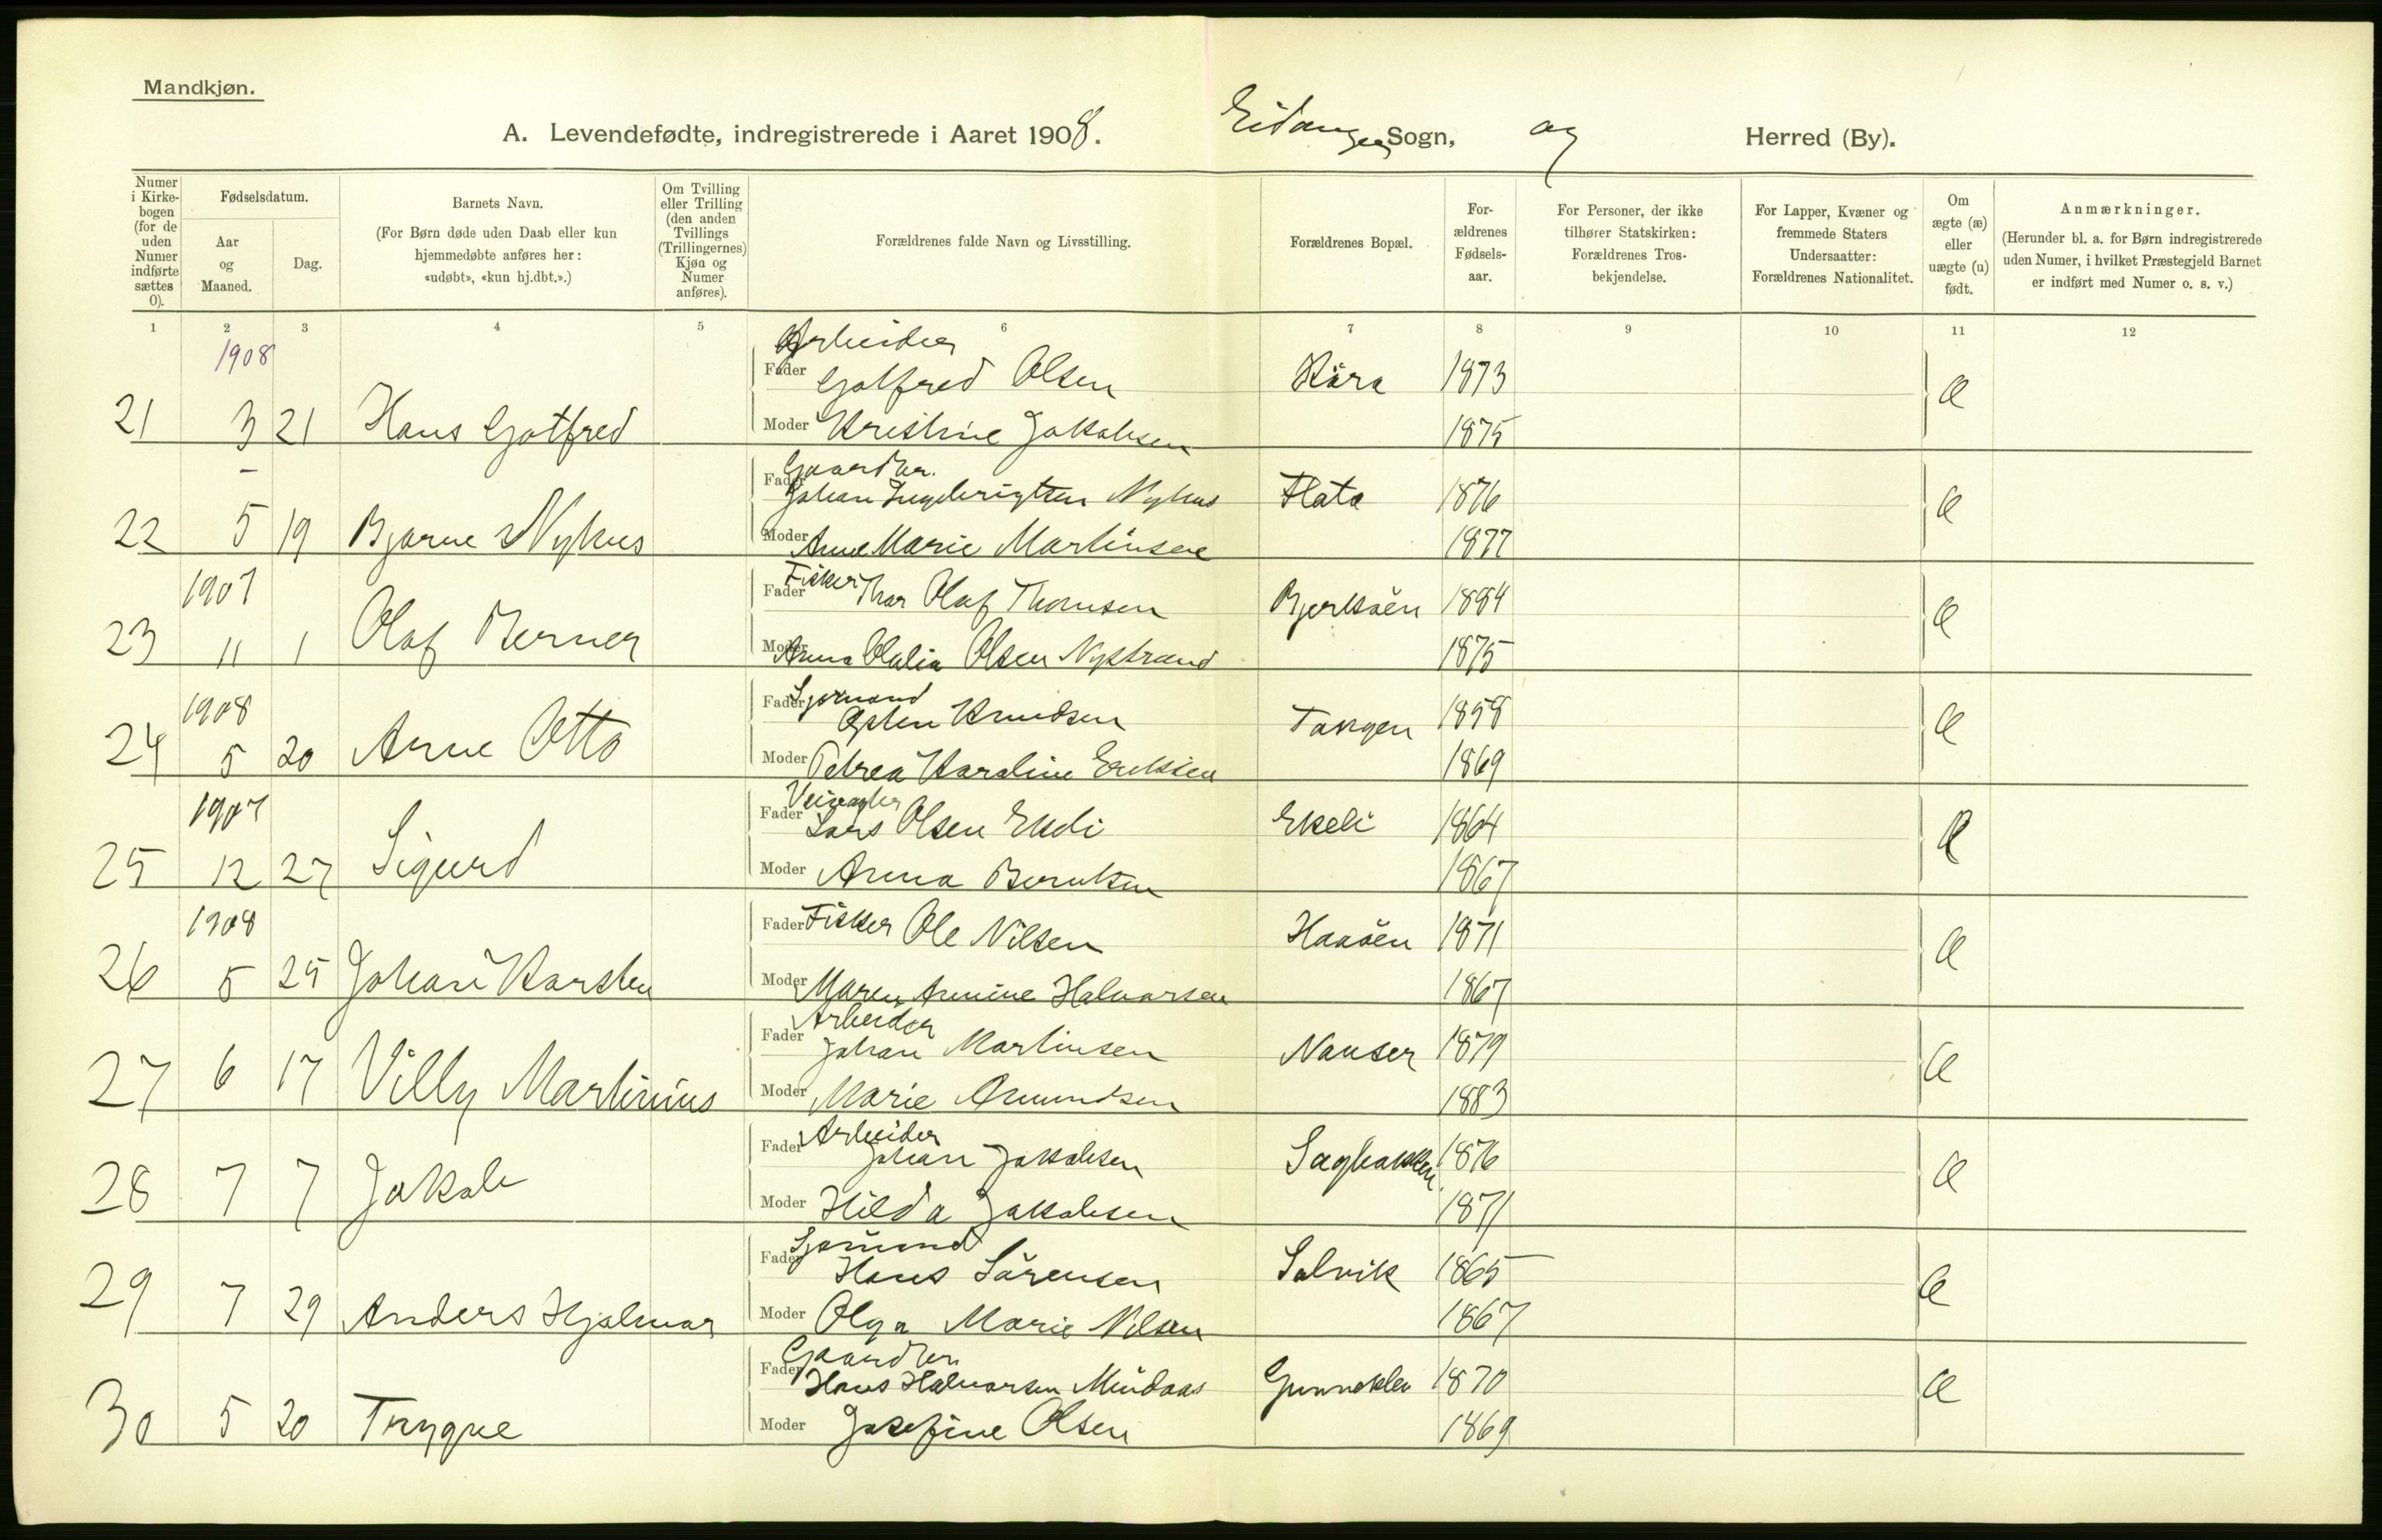 Mandkjøn.
A. Levendefødte, indregistrerede i Aaret 1908. Eidanger Sogn, og Herred (By).
Numer i Kirkebogen (for de uden Numer indførte sættes 0).
Fødselsdatum.
Aar og Maaned.
Dag.
Barnets Navn.
(For Børn døde uden Daab eller kun hjemmedøbte anføres her: «udøbt», «kun hj.dbt.».)
Om Tvilling eller Trilling (den anden Tvillings (Trillingernes) Kjøn og Numer anføres).
Forældrenes fulde Navn og Livsstilling.
Forældrenes Bopæl.
Forældrenes Fødselsaar.
For Personer, der ikke tilhører Statskirken: Forældrenes Trosbekjendelse.
For Lapper, Kvæner og fremmede Staters Undersaatter: Forældrenes Nationalitet.
Om ægte (æ) eller uægte (u) født.
Anmærkninger.
(Herunder bl. a. for Børn indregistrerede uden Numer, i hvilket Præstegjeld Barnet er indført med Numer o. s. v.)
1 2 3 4 5 6 7 8 9 10 11 12
1908 Arbeider
Fader Gotfred Olsen Kåra 1873
21 3 21 Hans Gotfred Moder Kristine Jakobsen 1875 æ
– Gaardbr.
Fader Johan Ingebrigtsen Nyhus Flata 1876
22 5 19 Bjarne Nyhus Moder Anne Marie Martinsen 1877 æ
1907 Fisker
Fader Thor Olaf Thomsen Bjerkøen 1884
23 11 1 Olaf Berner Moder Anna Olalia Olsen Nystrand 1875 æ
1908 Sjømand
Fader Østen Knudsen Tangen 1858
24 5 20 Arne Otto Moder Petrea Karoline Eriksen 1869 æ
1907 Veivogter
Fader Lars Olsen Ekeli Ekeli 1864
25 12 27 Sigurd Moder Anna Berntsen 1867 æ
1908 Fader Fisker Ole Nilsen Haaøen 1871
26 5 25 Johan Karsten Moder Maren Annine Halvorsen 1867 æ
Arbeider
Fader Johan Martinsen Nauser 1879
27 6 17 Villy Martinius Moder Marie Amundsen 1883 æ
Arbeider
Fader Johan Jakobsen Sagbakken 1876
28 7 7 Jakob Moder Hilda Jakobsen 1871 æ
Sjømand
Fader Hans Sörensen Solvik 1865
29 7 29 Anders Hjalmar Moder Olga Marie Nilsen 1867 æ
Gaardbr.
Fader Hans Halvorsen Gunneklev 1870
30 5 20 Trygve Moder Josefine Olsen 1869 æ